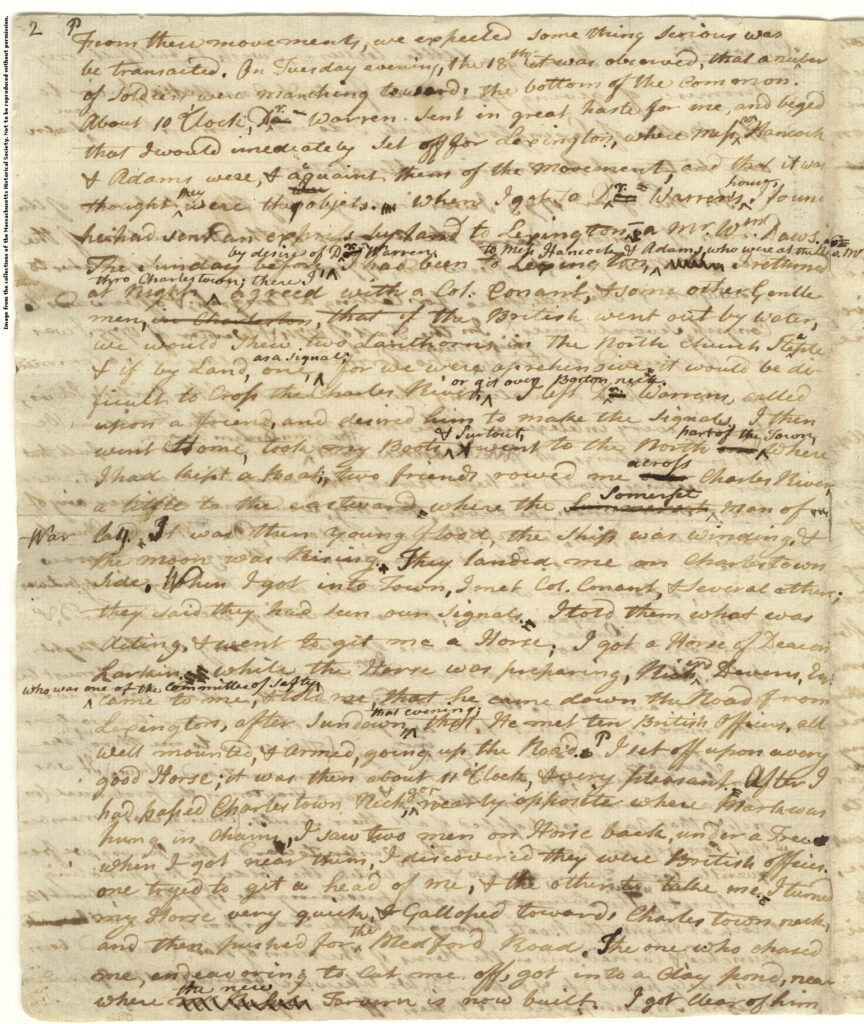 Image from the collections of the Massachusetts Historical Society. Not to be reproduced without permission.
2 P
From these movements, we expected something serious was
be transacted. On Tuesday evening, the 18th, it was observed, that a number
of Soldiers were marching towards the bottom of the Common.
About 10 o'Clock, Dr. Warren Sent in great haste for me, and beged
that I would imediately Set off for Lexington, where Messrs. Hancock
& Adams were, & acquaint them of the Movement, and that it was
thought they were the objets. When I got to Dr. Warren's house, I found
he had sent an express by land to Lexington – a Mr. Wm. Daws.
by desire of Dr. Warren to Mess. Hancock & Adams, who were at the Rev. Mr
The Sunday before, I had been to Lexington, returned
thro Charlestown; there I
at Night agreed with a Col. Conant, & some other Gentle
men, in Charleston, that if the British went out by Water,
we would shew two Lanthorns in the North Church Steeple
& if by Land, one, as a Signal; for we were aprehensive it would be dif
ficult to Cross the Charles River, or git over Boston neck. I left Dr. Warrens, called
upon a friend, and desired him to make the Signals. I then
went Home, took my Boots & Surtout, & went to the North part of the Town, where
I had kept a Boat; two friends rowed me across Charles River
a little to the eastward where the Somerset Man of
War lay. It was then young flood, the Ship was winding, &
the moon was Rising. They landed me on Charlestown
side. When I got into Town, I met Col. Conant, & several others;
they said they had seen our signals. I told them what was
Acting, & went to git me a Horse; I got a Horse of Deacon
Larkin. while the Horse was preparing, Richard Devens, Esq.
who was one of the Committee of Safty,
came to me, & told me, that he came down the Road from
Lexington, after Sundown, that evening; that He met ten British Officers, all
well mounted, & armed, going up the Road. P I set off upon a very
good Horse; it was then about 11 o'Clock, & very pleasant. After I
had passed Charlestown Neck, & got nearly opposite where Mark was
hung in chains, I saw two men on Horse back, under a Tree.
when I got near them, I discovered they were British officers.
one tryed to git a head of me, & the other to take me. I turned
my Horse very quick, & Galloped towards Charlestown neck,
and then pushed for the Medford Road. The one who chased
me, endeavoring to Cut me off, got into a Clay pond, near
where the new Tavern is now built. I got clear of him,